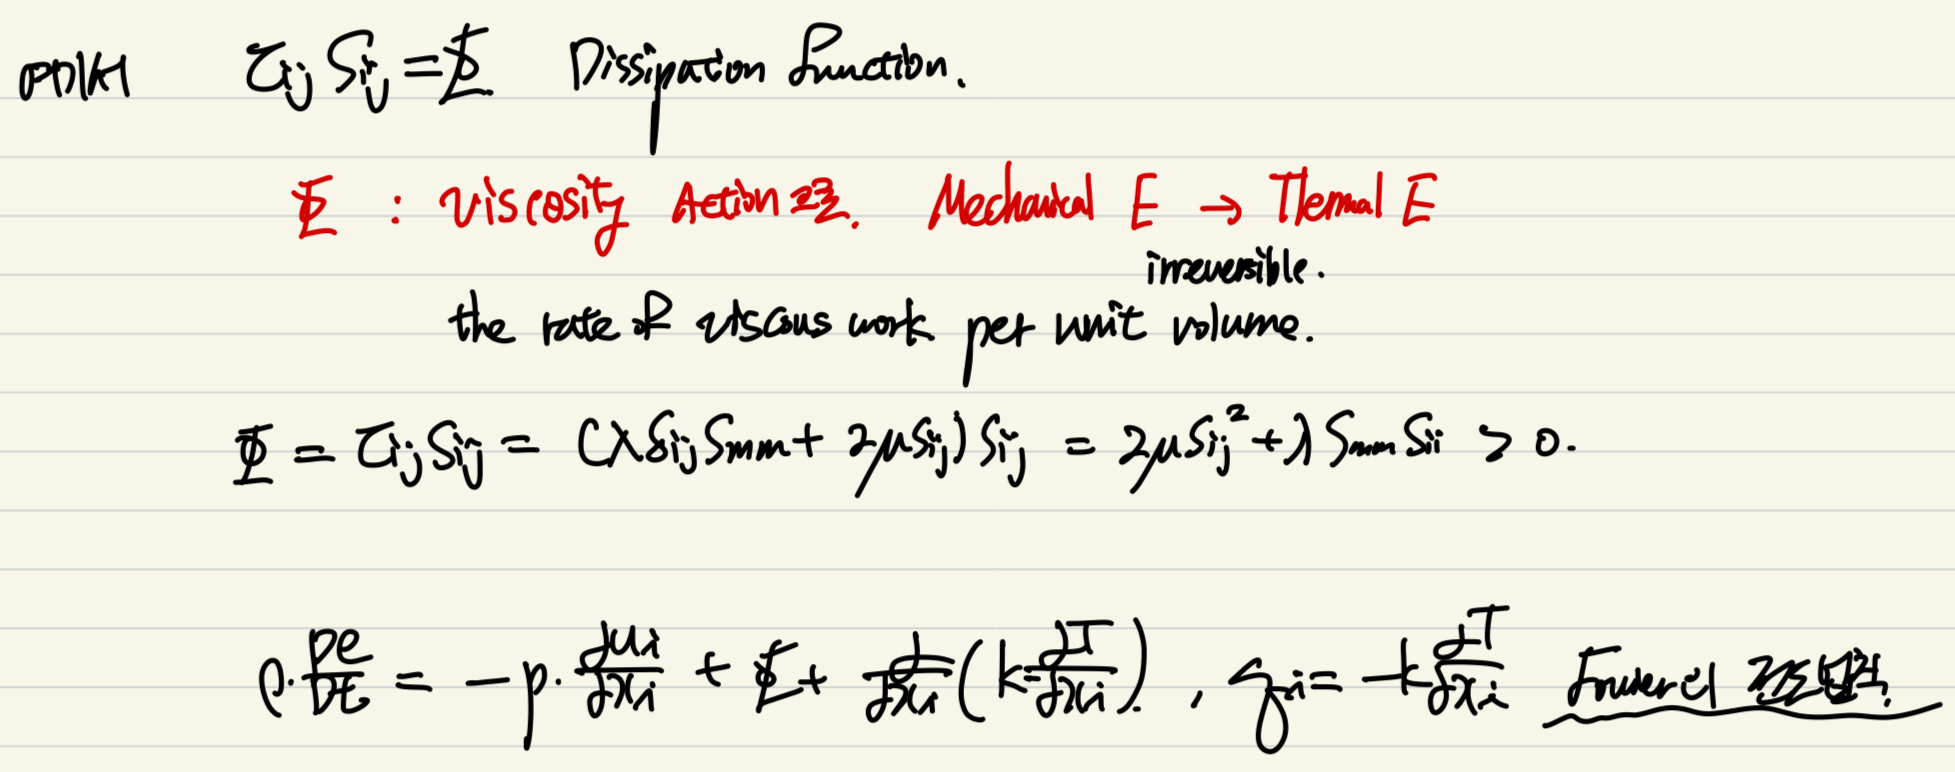 여기서 τij Sij = Φ Dissipation function.
Φ : viscosity Action으로. Mechanical E → Thermal E
irreversible.
the rate of viscous work per unit volume.
Φ = τij Sij = (λδij Smm + 2μSij) Sij = 2μSij² + λ Smm Sii > 0.
ρ·De/Dt = -p·∂ui/∂xi + Φ + ∂/∂xi (k ∂T/∂xi), qi = -k ∂T/∂xi Fourier의